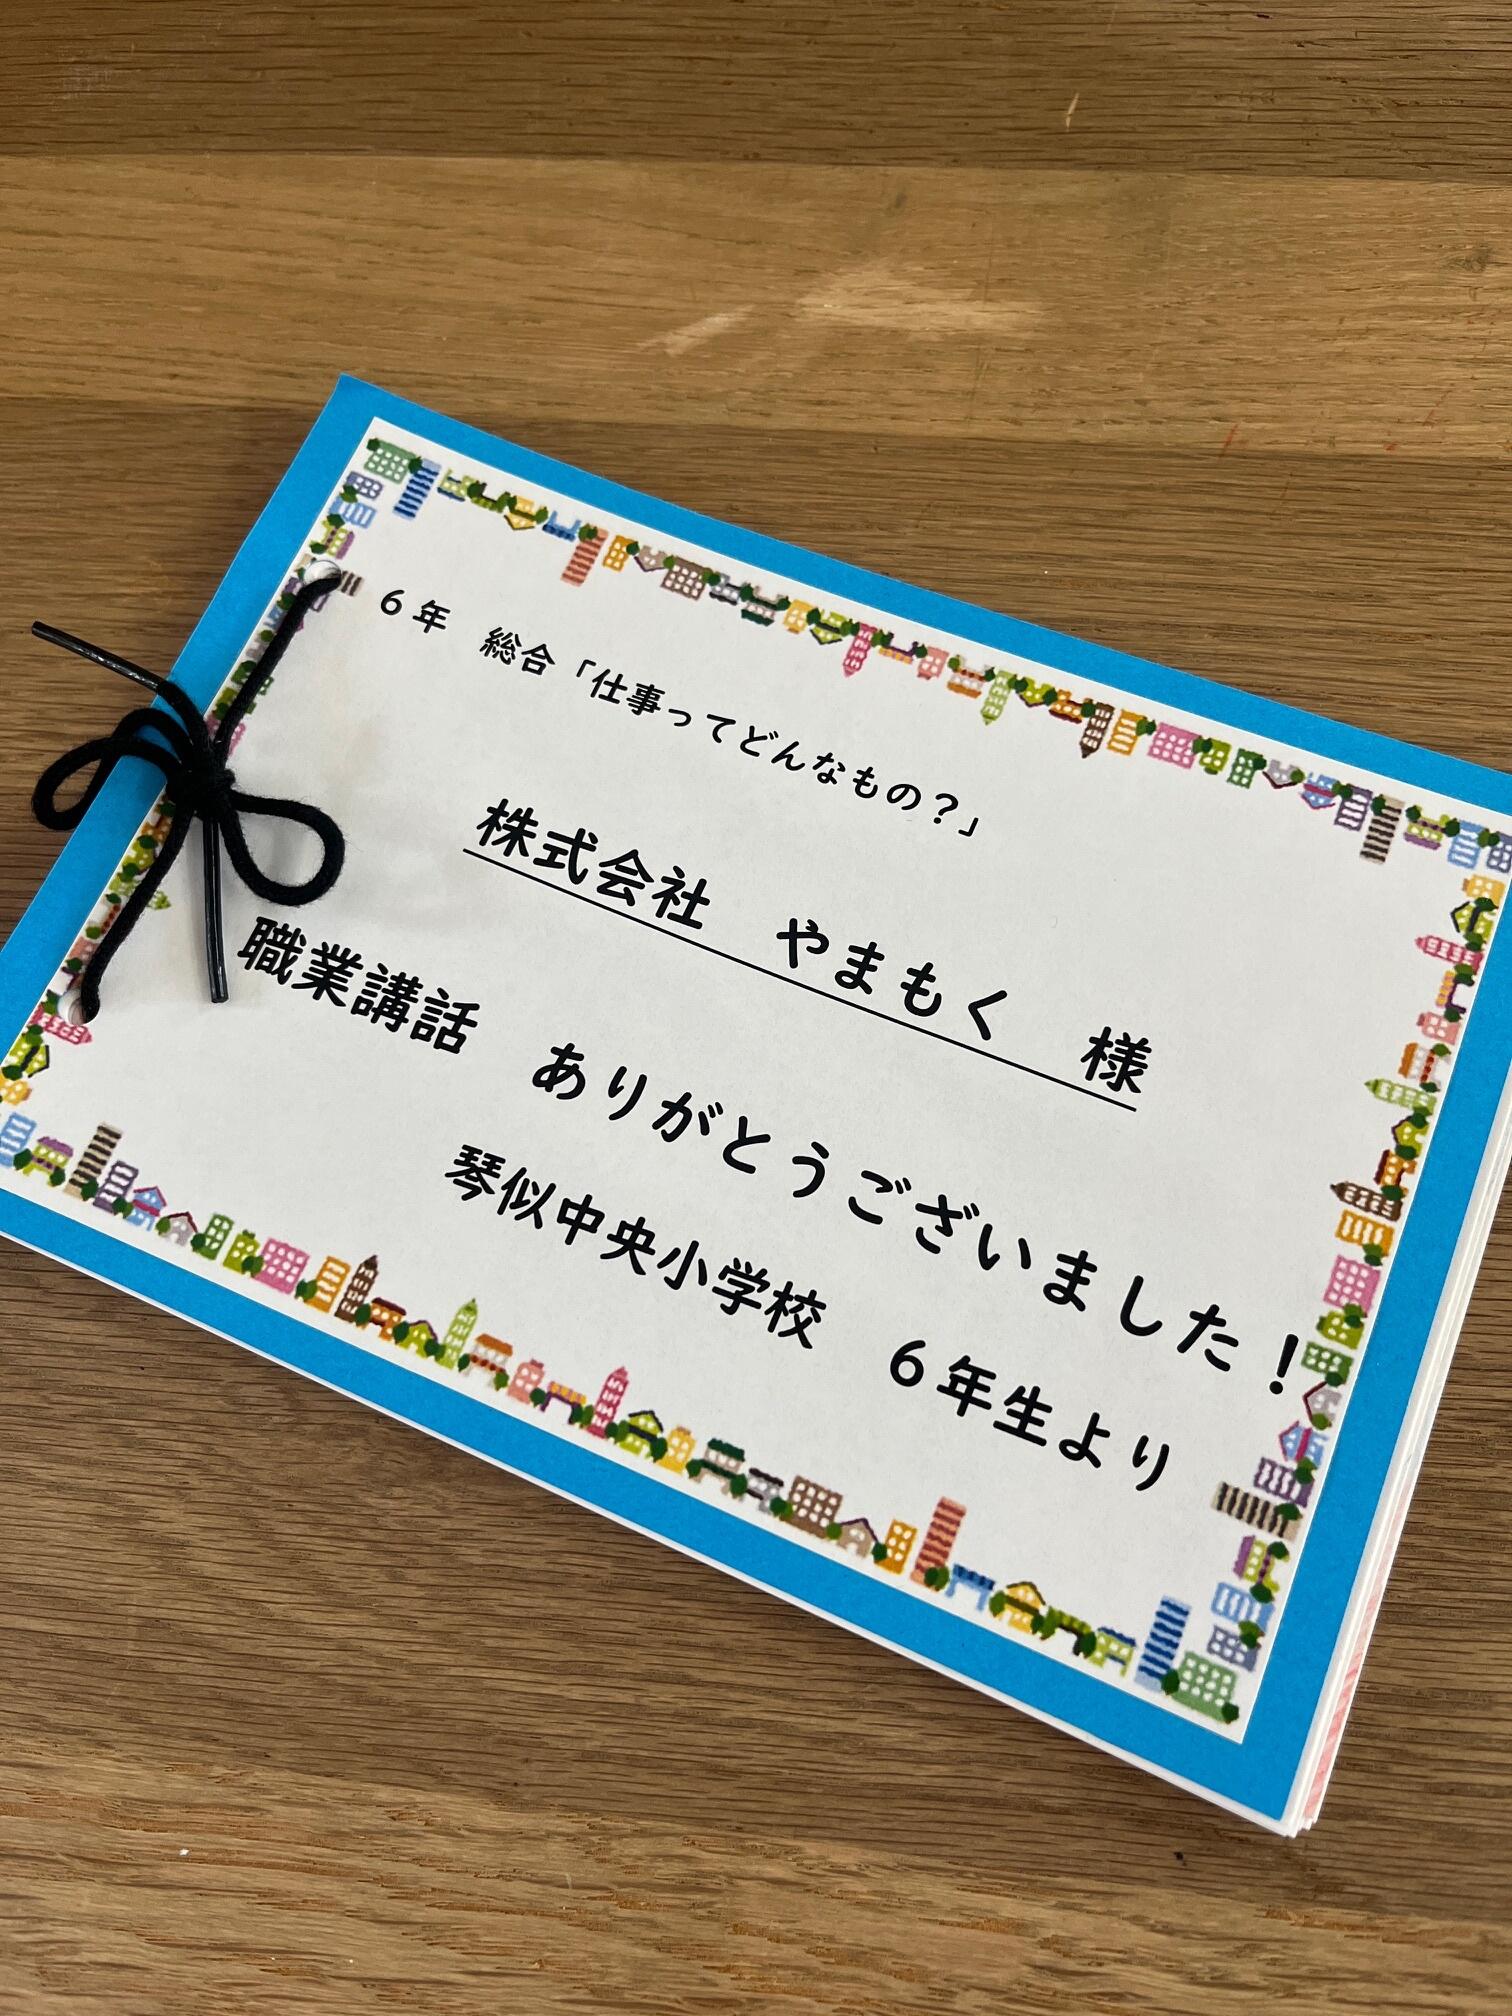 ６年　総合「仕事ってどんなもの？」
株式会社　やまもく　様
職業講話　ありがとうございました！
琴似中央小学校　６年生より